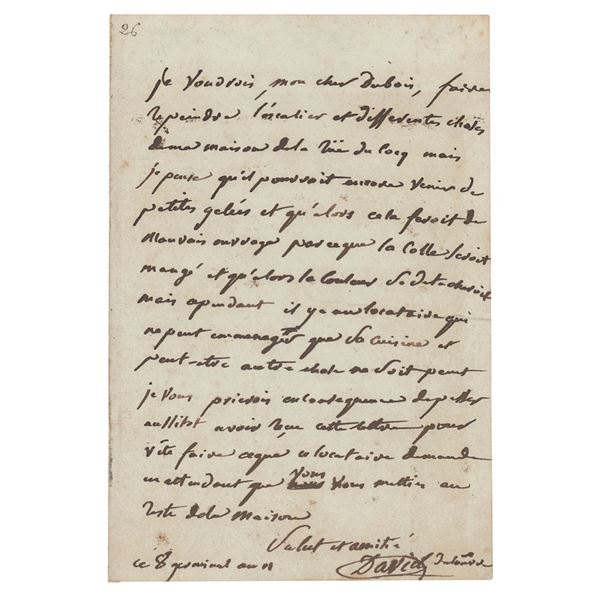 26
je voudrois, mon cher Dubois, faire
repeindre l'escalier et differentes choses
de ma maison de la rue du Coq mais
je pense qu'il pourroit encore venir de
petites gelées et qu'alors cela feroit de
mauvais ouvrage parceque la Colle seroit
mangé et qu'alors la Couleur se detacheroit
mais cependant il y a un locataire qui
ne peut emmenager que sa cuisine et
peut-etre autre chose ne soit peint
je vous prierois en consequence de passer
aussitot avoir reçue cette lettre pour
vite faire ceque ce locataire demande
en attendant que vous vous mettiez au
reste de la maison
Salut et amitié
ce 8 germinal an 11 David